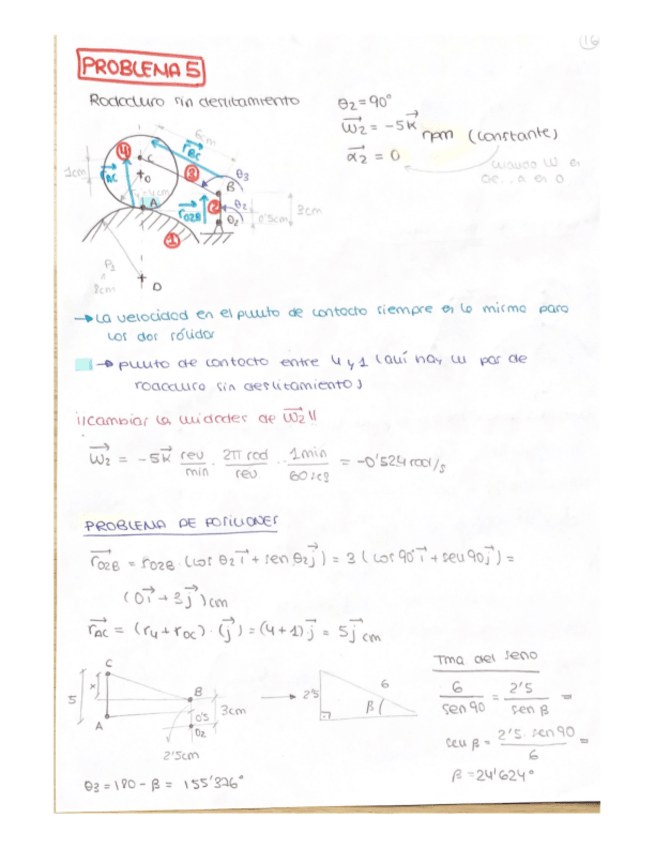 16
PROBLEMA 5
Rodadura sin deslizamiento
θ2 = 90°
ω2 = -5k rpm (constante)
α2 = 0
6cm
rBC
4
C
1cm
rAC
O
3
θ3
B
r4=4cm
A
rO2B
2
θ2
O2
0'5cm
3cm
1
8cm
D
→ La velocidad en el punto de contacto siempre es la misma para
los dos sólidos
→ punto de contacto entre 4 y 1 (aquí hay un par de
rodadura sin deslizamiento)
¡¡cambiar la unidades de ω2!!
ω2 = -5k rev/min · 2π rad/rev · 1min/60seg = -0'524 rad/s
PROBLEMA DE POSICIONES
rO2B = rO2B · (cos θ2 i + sen θ2 j) = 3 (cos 90° i + sen 90 j) =
(0i + 3j) cm
rAC = (r4 + rOC) · (j) = (4+1) j = 5j cm
C
5
x
A
B
0'5
O2
3cm
2'5cm
→
2'5
6
β
Tma del seno
6/sen 90 = 2'5/sen β =
sen β = 2'5 · sen 90/6 =
β = 24'624°
θ3 = 180 - β = 155'376°